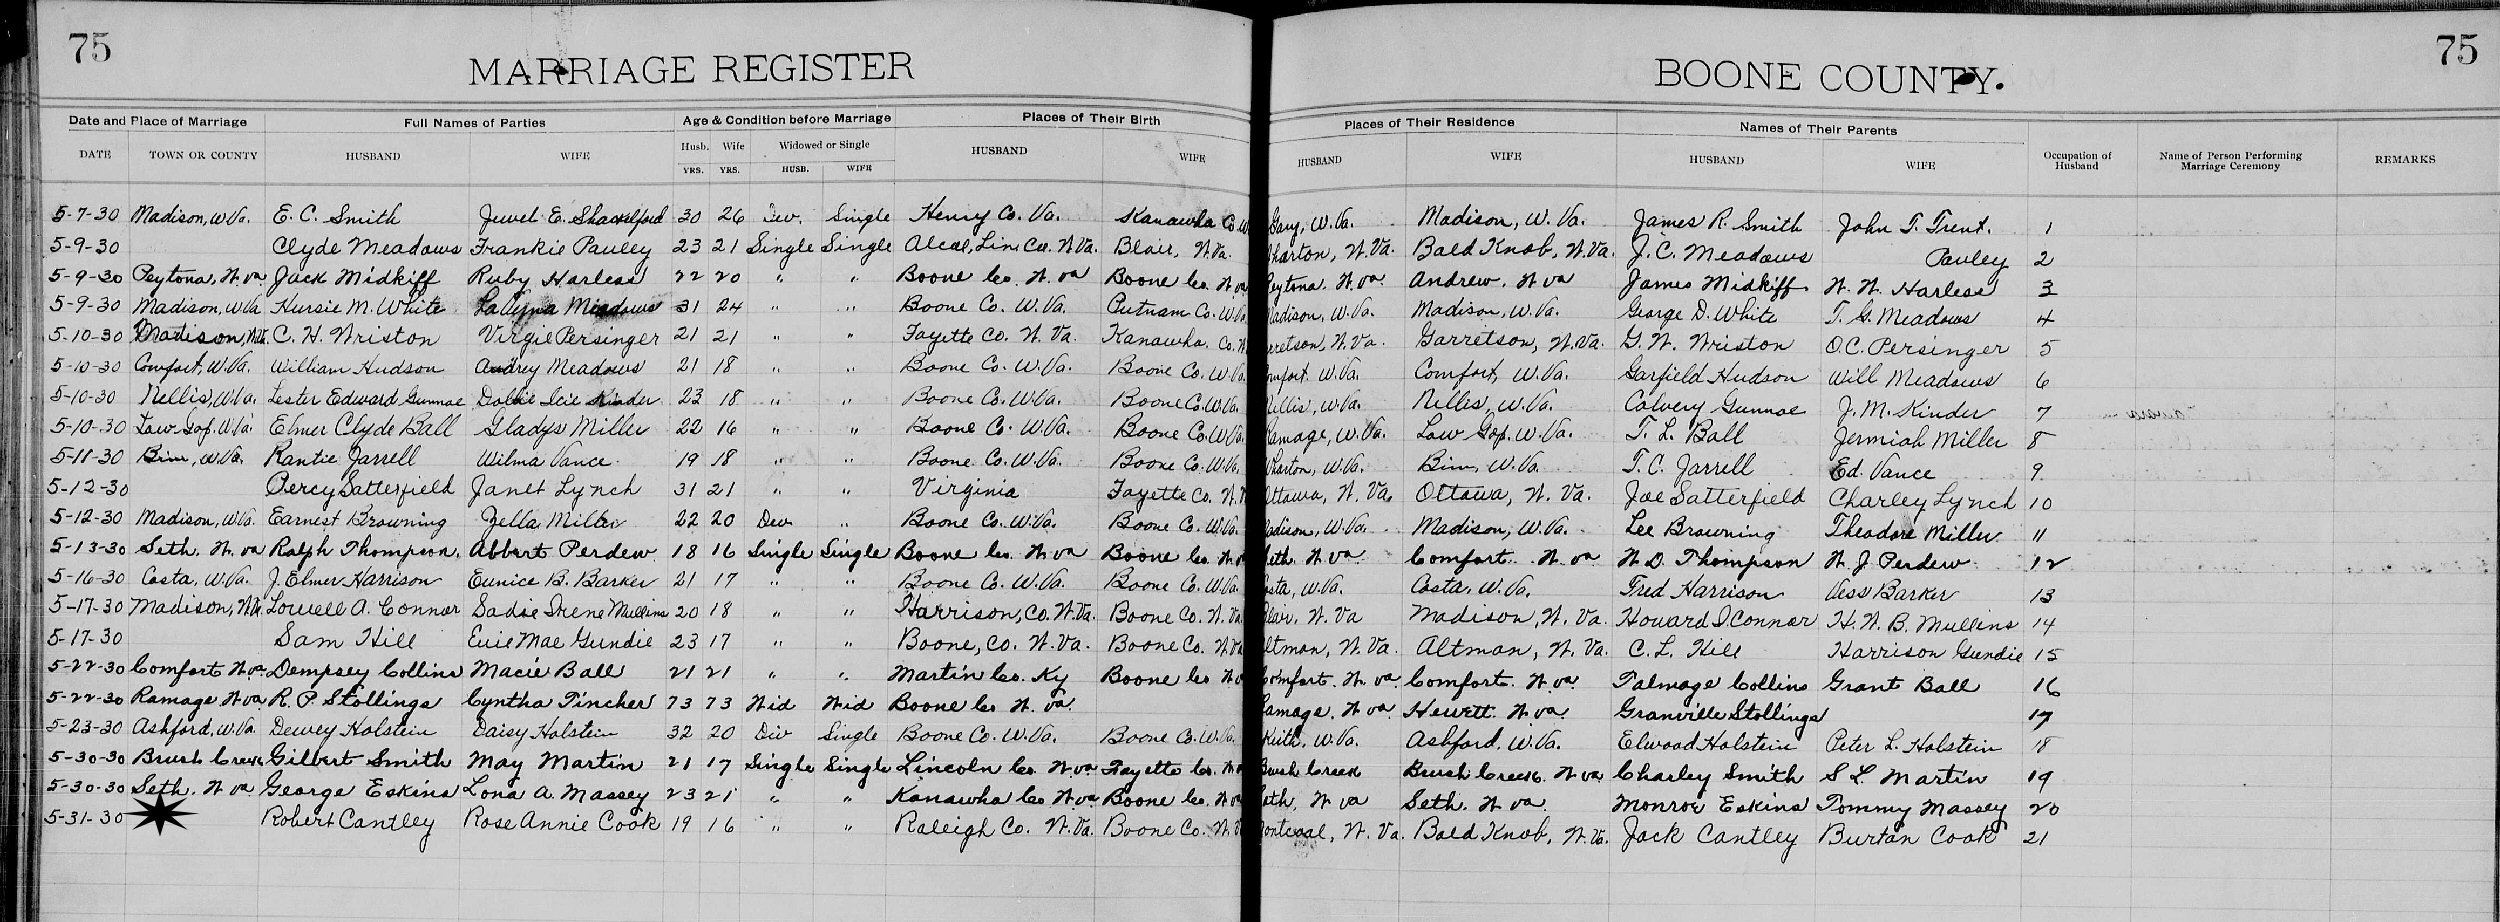 75 75
MARRIAGE REGISTER BOONE COUNTY.
Date and Place of Marriage Full Names of Parties Age & Condition before Marriage Places of Their Birth Places of Their Residence Names of Their Parents
DATE TOWN OR COUNTY HUSBAND WIFE Husb. Wife Widowed or Single HUSBAND WIFE HUSBAND WIFE HUSBAND WIFE Occupation of Husband Name of Person Performing Marriage Ceremony REMARKS
YRS. YRS. HUSB. WIFE
5-7-30 Madison, W.Va. E. C. Smith Jewel E. Shackelford 30 26 Div. Single Henry Co. Va. Kanawha Co. W. Gary, W.Va. Madison, W. Va. James R. Smith John T. Trent. 1
5-9-30 Clyde Meadows Frankie Pauley 23 21 Single Single Alcoe, Lin. Co. W.Va. Blair, W.Va. Wharton, W.Va. Bald Knob, W.Va. J. C. Meadows Pauley 2
5-9-30 Peytona, W.va Jack Midkiff Ruby Harless 22 20 " " Boone Co. W. va Boone Co. W va Peytona. W.va. Andrew. W va James Midkiff W. W. Harless 3
5-9-30 Madison, W.Va Hursie M. White Meadows 31 24 " " Boone Co. W.Va. Putnam Co. W.Va. Madison, W.Va. Madison, W.Va. George D. White T. G. Meadows 4
5-10-30 Madison, W.Va. C. H. Wriston Virgie Persinger 21 21 " " Fayette Co. W. Va. Kanawha. Co. W. Garretson, W.Va. Garretson, W.Va. G. W. Wriston O.C. Persinger 5
5-10-30 Comfort, W.Va. William Hudson Audrey Meadows 21 18 " " Boone Co. W.Va. Boone Co. W.Va. Comfort. W.Va. Comfort, W.Va. Garfield Hudson Will Meadows 6
5-10-30 Nellis, W.Va. Lester Edward Gunnoe Dollie Icie Kinder 23 18 " " Boone Co. W.Va. Boone Co. W.Va. Nellis, W.Va. Nellis, W.Va. Calvery Gunnoe J. M. Kinder 7
5-10-30 Low Gap, W.Va. Elmer Clyde Ball Gladys Miller 22 16 " " Boone Co. W.Va. Boone Co. W.Va. Ramage, W.Va. Low Gap, W.Va. T. L. Ball Jermiah Miller 8
5-11-30 Bim, W.Va. Rantie Jarrell Wilma Vance 19 18 " " Boone Co. W.Va. Boone Co. W.Va. Wharton, W.Va. Bim, W.Va. T. C. Jarrell Ed. Vance 9
5-12-30 Percy Satterfield Janet Lynch 31 21 " " Virginia Fayette Co. W. Ottawa, W. Va. Ottawa, W. Va. Joe Satterfield Charley Lynch 10
5-12-30 Madison, W.Va. Earnest Browning Zella Miller 22 20 Div " Boone Co. W.Va. Boone Co. W.Va. Madison, W.Va. Madison, W.Va. Lee Browning Theodore Miller 11
5-13-30 Seth. W. va Ralph Thompson. Abbart Perdew 18 16 Single Single Boone Co. W. va Boone Co. W. Seth. W va Comfort. W va W D Thompson W. J Perdew 12
5-16-30 Costa, W.Va. J. Elmer Harrison Eunice B. Barker 21 17 " " Boone Co. W.Va. Boone Co. W.Va. Costa, W.Va. Costa, W.Va. Fred Harrison Vess Barker 13
5-17-30 Madison, W.Va. Lowell A. Connor Sadie Irene Mullins 20 18 " " Harrison, Co. W.Va. Boone Co. W.Va. Blair, W. Va Madison, W. Va. Howard O Connor H. W. B. Mullins 14
5-17-30 Sam Hill Euie Mae Gundie 23 17 " " Boone, Co. W. Va. Boone Co. W.Va Altman, W. Va. Altman, W. Va. C. L. Hill Harrison Gundie 15
5-22-30 Comfort W va. Dempsey Collins Macie Ball 21 21 " " Martin Co. Ky Boone Co W v Comfort. W. va. Comfort. W va. Talmage Collins Grant Ball 16
5-22-30 Ramage W va R. P. Stollings Cyntha Pincher 73 73 Wid Wid Boone Co W. va. Ramage. W va. Hewett. W va. Granville Stollings 17
5-23-30 Ashford, W.Va. Dewey Holstein Daisy Holstein 32 20 Div Single Boone Co. W.Va. Boone Co. W.Va. Keith, W.Va. Ashford, W.Va. Elwood Holstein Peter L. Holstein 18
5-30-30 Brush Creek Gilbert Smith May Martin 21 17 Single Single Lincoln Co. W va Fayette Co. W. Brush Creek Brush Creek. W va Charley Smith S L. Martin 19
5-30-30 Seth. W va. George Eskins Lona A. Massey 23 21 " " Kanawha Co W va Boone Co. W va Seth. W va Seth. W va Monroe Eskins Tommy Massey 20
5-31-30 Robert Cantley Rose Annie Cook 19 16 " " Raleigh Co. W.Va. Boone Co. W.V Montcoal, W. Va. Bald Knob, W. Va. Jack Cantley Burton Cook 21